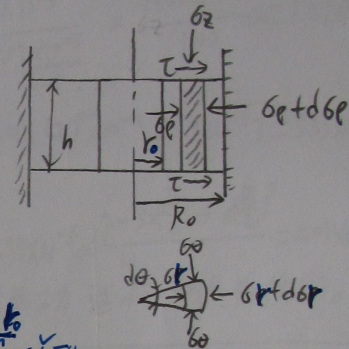 σz
τ→
σρ
σρ+dσρ
h
r₀
τ→
R₀
σθ
dθ
σr
σr+dσr
σθ
r₀